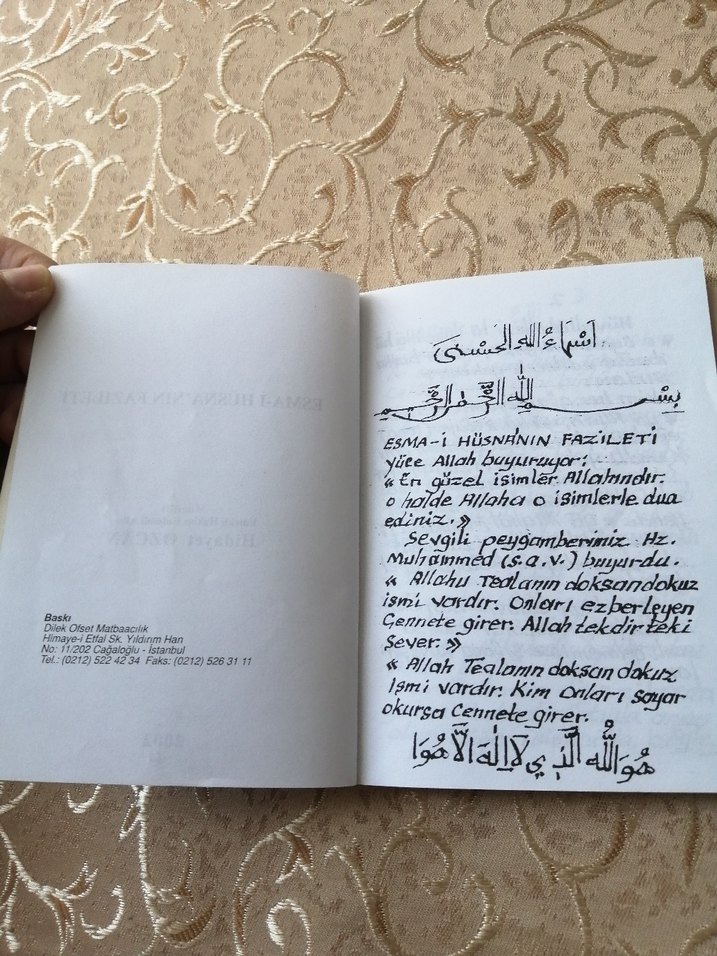 Baskı
Dilek Ofset Matbaacılık
Himaye-i Etfal Sk. Yıldırım Han
No: 11/202 Cağaloğlu - İstanbul
Tel.: (0212) 522 42 34 Faks: (0212) 526 31 11
اَسْمَاءُ اللهِ الْحُسْنَى
بِسْمِ اللهِ الرَّحْمٰنِ الرَّحِيمِ
ESMA-İ HÜSNA'NIN FAZİLETİ
yüce Allah buyuruyor:
« En güzel isimler Allahındır.
o halde Allaha o isimlerle dua
ediniz. »
Sevgili peygamberimiz Hz.
Muhammed (s.a.v.) buyurdu.
« Allahu Tealanın doksandokuz
ismi vardır. Onları ezberleyen
Cennete girer. Allah tekdir teki
Sever. »
« Allah Tealanın doksan dokuz
ismi vardır. Kim onları sayar
okursa Cennete girer.
هُوَ اللهُ الَّذِي لَا اِلٰهَ اِلَّا هُوَا